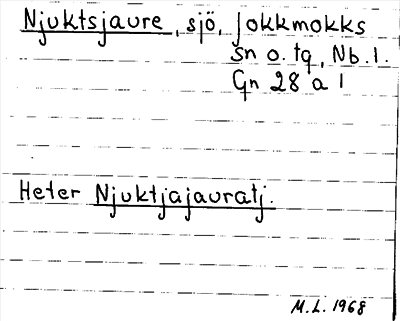 Njuktsjaure, sjö, Jokkmokks
sn o. tg, Nb. l.
Gn 28 a 1
Heter Njuktjajauratj.
M.L. 1968